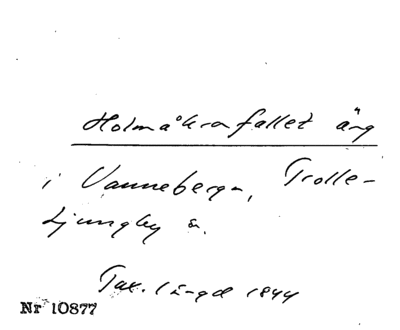 Holmåkrafallet äng
i Vanneberga, Trolle-
Ljungby sn.
Tax. längd 1844
Nr 10877